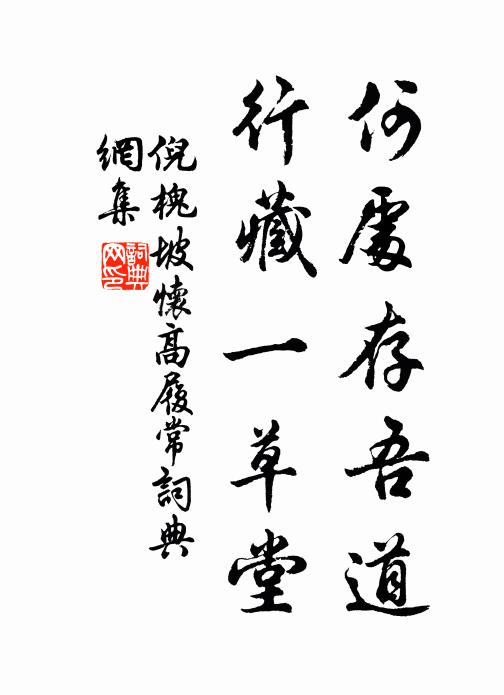 何處存吾道
行藏一草堂
倪槐坡懷高履常詞典
網集
詞典
网印